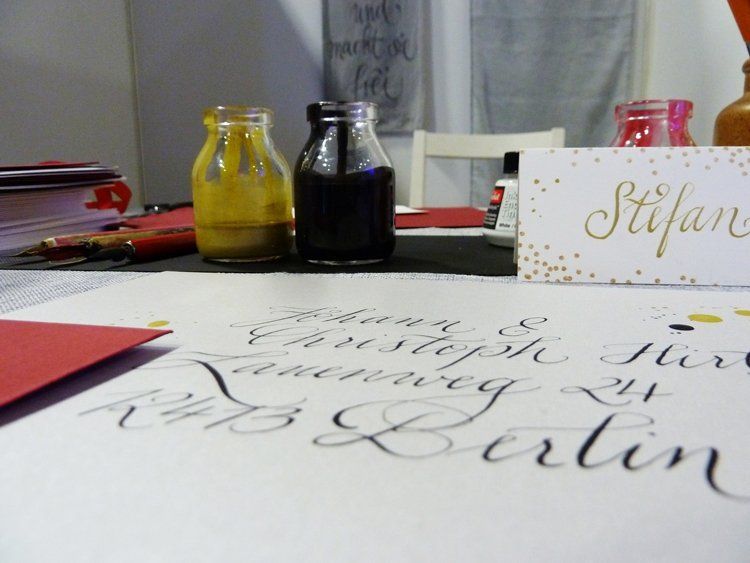 und
macht sie
frei
Stefan
Johann &
Christoph Hirt
Lauenweg 24
12413 Berlin